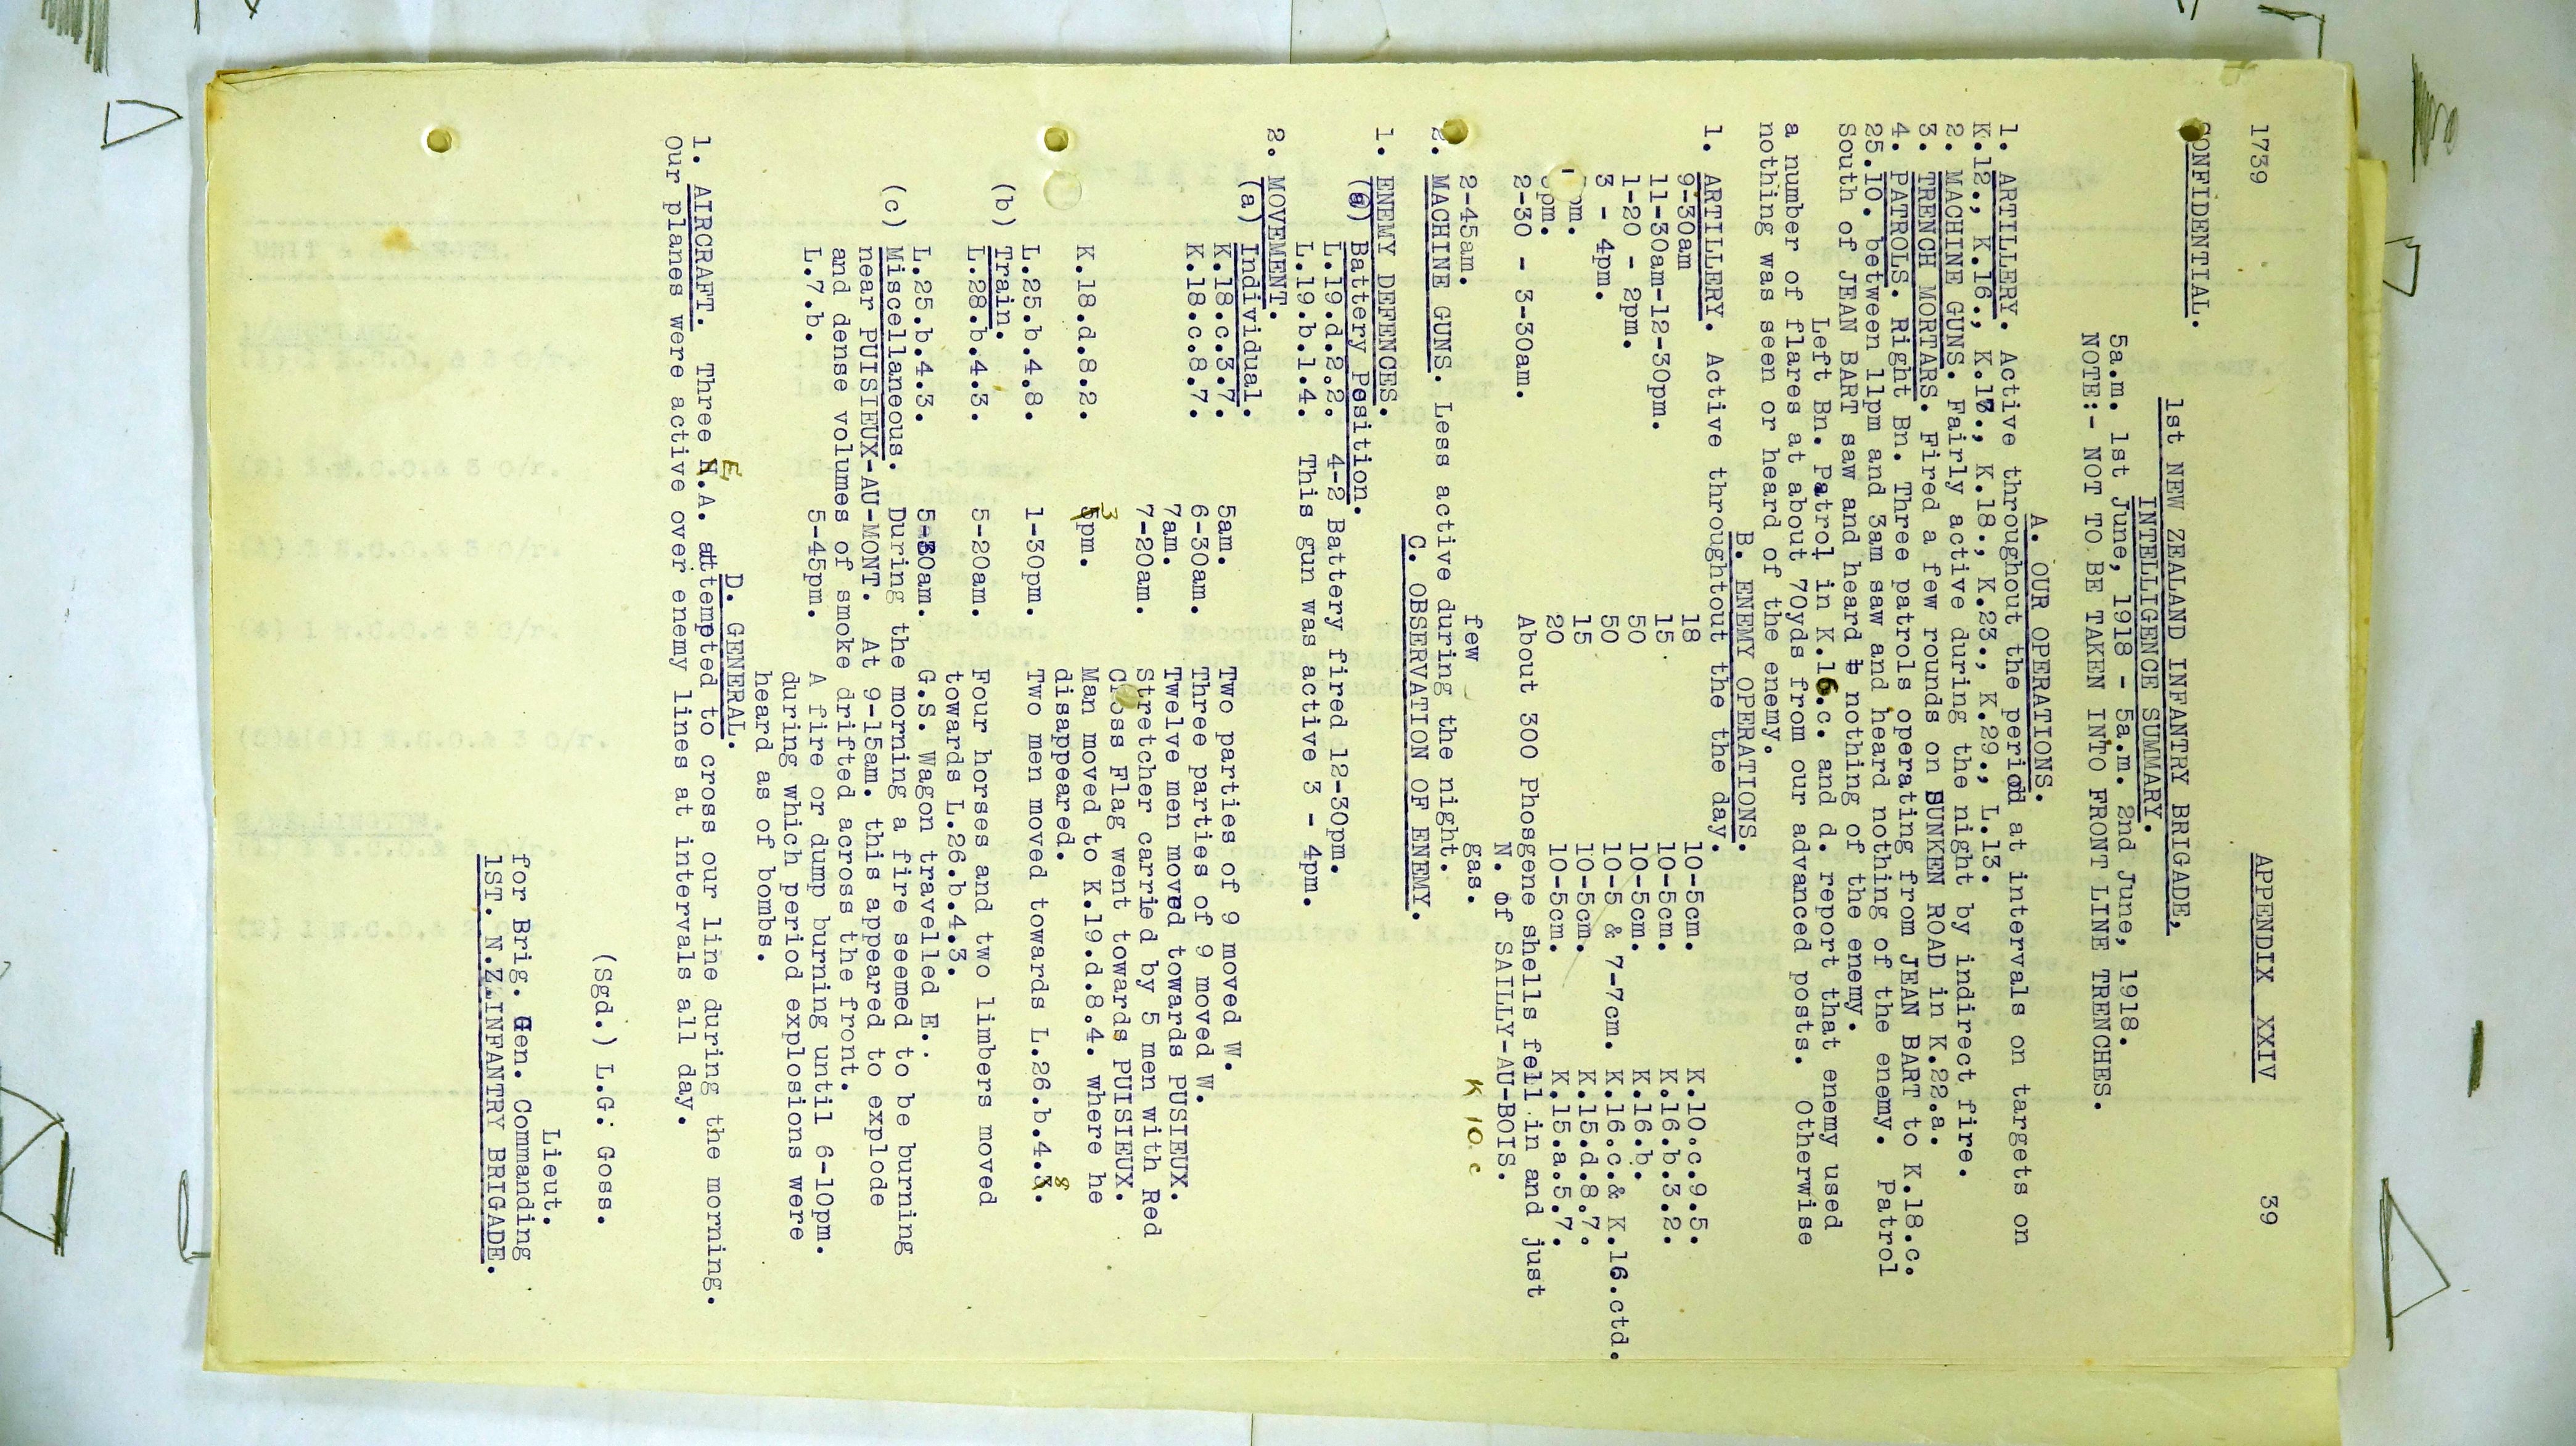 1739 APPENDIX XXIV 39
CONFIDENTIAL.
1st NEW ZEALAND INFANTRY BRIGADE,
INTELLIGENCE SUMMARY.
5a.m. 1st June, 1918 - 5a.m. 2nd June, 1918.
NOTE:- NOT TO BE TAKEN INTO FRONT LINE TRENCHES.
A. OUR OPERATIONS.
1. ARTILLERY. Active throughout the period at intervals on targets on
K.12., K.16., K.17., K.18., K.23., K.29., L.13.
2. MACHINE GUNS. Fairly active during the night by indirect fire.
3. TRENCH MORTARS. Fired a few rounds on SUNKEN ROAD in K.22.a.
4. PATROLS. Right Bn. Three patrols operating from JEAN BART to K.18.c.
25.10. between 11pm and 3am saw and heard nothing of the enemy. Patrol
South of JEAN BART saw and heard nothing of the enemy.
Left Bn. Patrol in K.16.c. and d. report that enemy used
a number of flares at about 70yds from our advanced posts. Otherwise
nothing was seen or heard of the enemy.
B. ENEMY OPERATIONS.
1. ARTILLERY. Active throughtout the the day.
9-30am 18 10-5cm. K.10.c.9.5.
11-30am-12-30pm. 15 10-5cm. K.16.b.3.2.
1-20 - 2pm. 50 10-5cm. K.16.b.
3 - 4pm. 50 10-5 & 7-7cm. K.16.c.& K.16.ctd.
pm. 15 10-5cm. K.15.d.8.7.
pm. 20 10-5cm. K.15.a.5.7.
2-30 - 3-30am. About 300 Phosgene shells fell in and just
N. of SAILLY-AU-BOIS.
2-45am. few gas. K 10.c
2. MACHINE GUNS. Less active during the night.
C. OBSERVATION OF ENEMY.
1. ENEMY DEFENCES.
(a) Battery Position.
L.19.d.2.2. 4-2 Battery fired 12-30pm.
L.19.b.1.4. This gun was active 3 - 4pm.
2. MOVEMENT.
(a) Individual.
K.18.c.3.7. 5am. Two parties of 9 moved W.
K.18.c.8.7. 6-30am. Three parties of 9 moved W.
7am. Twelve men moved towards PUSIEUX.
7-20am. Stretcher carried by 5 men with Red
Cross Flag went towards PUISIEUX.
K.18.d.8.2. 3pm. Man moved to K.19.d.8.4. where he
disappeared.
L.25.b.4.8. 1-30pm. Two men moved towards L.26.b.4.8.
(b) Train.
L.28.b.4.3. 5-20am. Four horses and two limbers moved
towards L.26.b.4.3.
L.25.b.4.3. 5-30am. G.S. Wagon travelled E.
(c) Miscellaneous. During the morning a fire seemed to be burning
near PUISIEUX-AU-MONT. At 9-15am. this appeared to explode
and dense volumes of smoke drifted across the front.
L.7.b. 5-45pm. A fire or dump burning until 6-10pm.
during which period explosions were
heard as of bombs.
D. GENERAL.
1. AIRCRAFT. Three E.A. attempted to cross our line during the morning.
Our planes were active over enemy lines at intervals all day.
(Sgd.) L.G. Goss.
Lieut.
for Brig. Gen. Commanding
1ST. N.Z.INFANTRY BRIGADE.